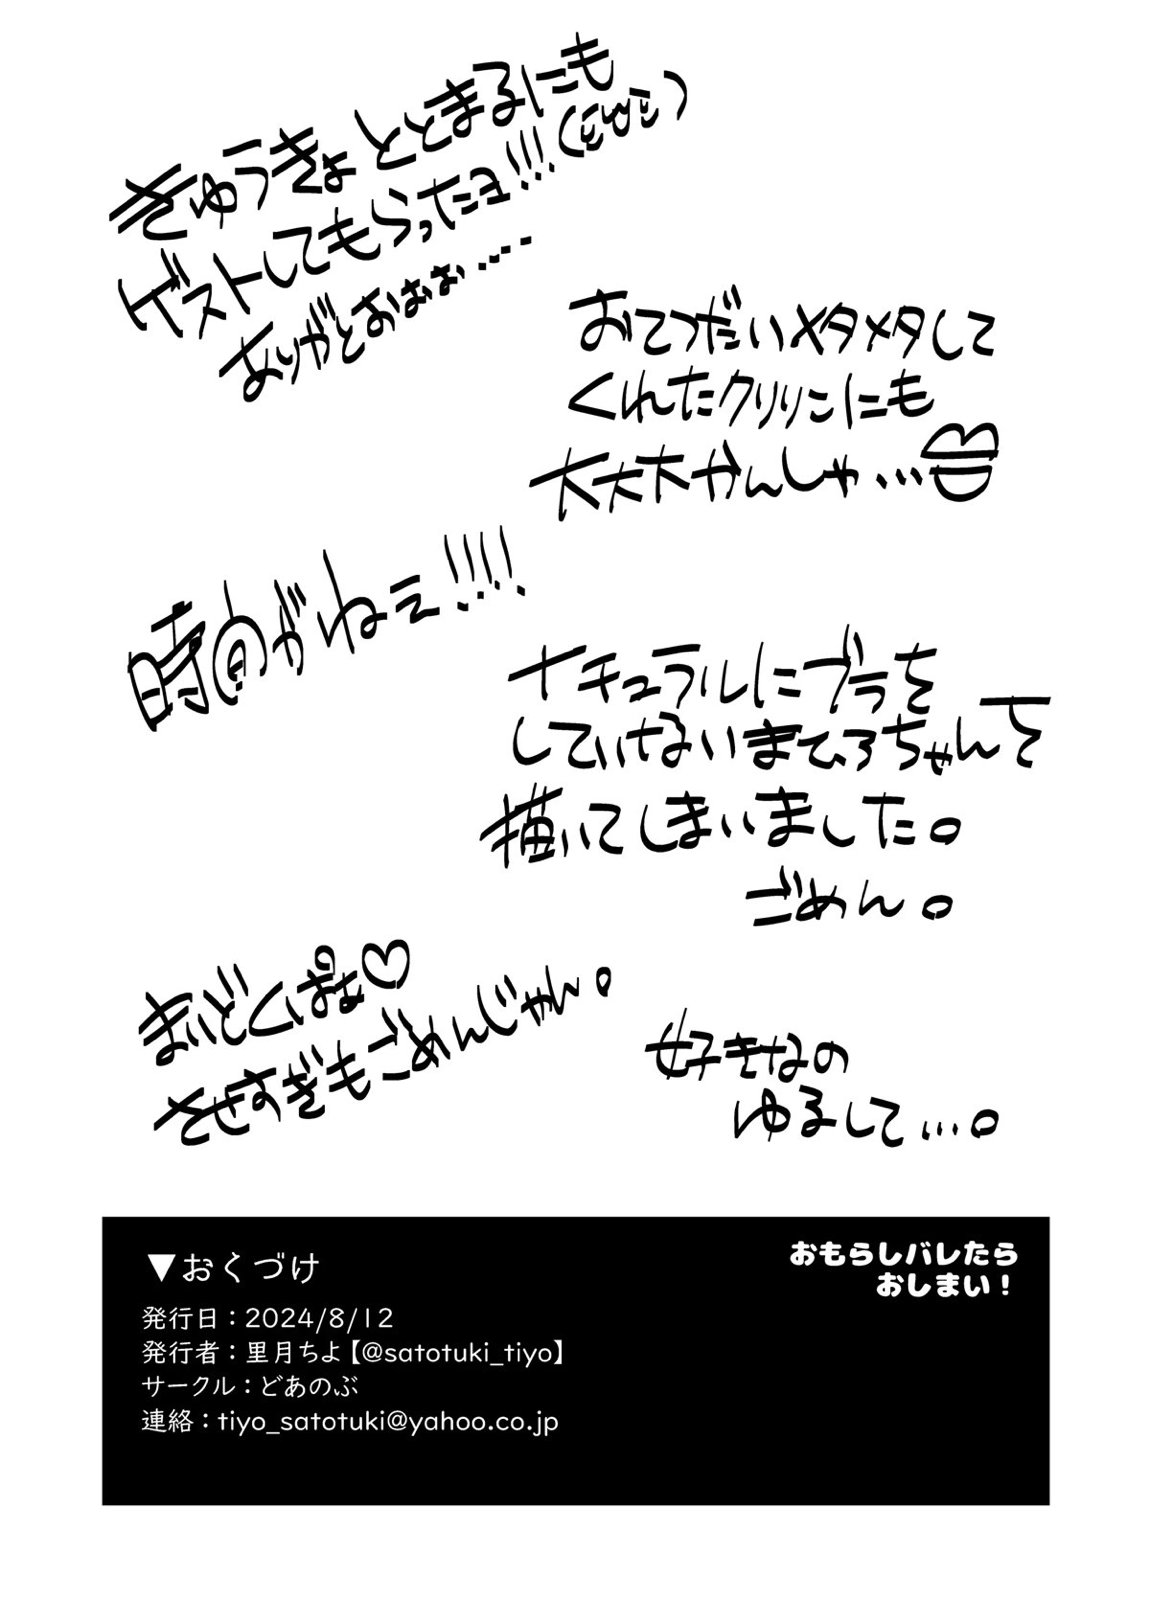 きゅうきょ ととまるにも
ゲストしてもらったヨ!!!
ありがとおぉぉ....
おてつだいメタメタして
くれたクリリンにも
大大大かんしゃ...
時間がねェ!!!!
ナチュラルにブラを
していけないまひろちゃんを
描いてしまいました。
ごめん。
まいどくぱぁ♡
させすぎもごめんじゃん。
好きなの
ゆるして...。
▼おくづけ
おもらしバレたら
おしまい！
発行日：2024/8/12
発行者：里月ちよ【@satotuki_tiyo】
サークル：どあのぶ
連絡：tiyo_satotuki@yahoo.co.jp